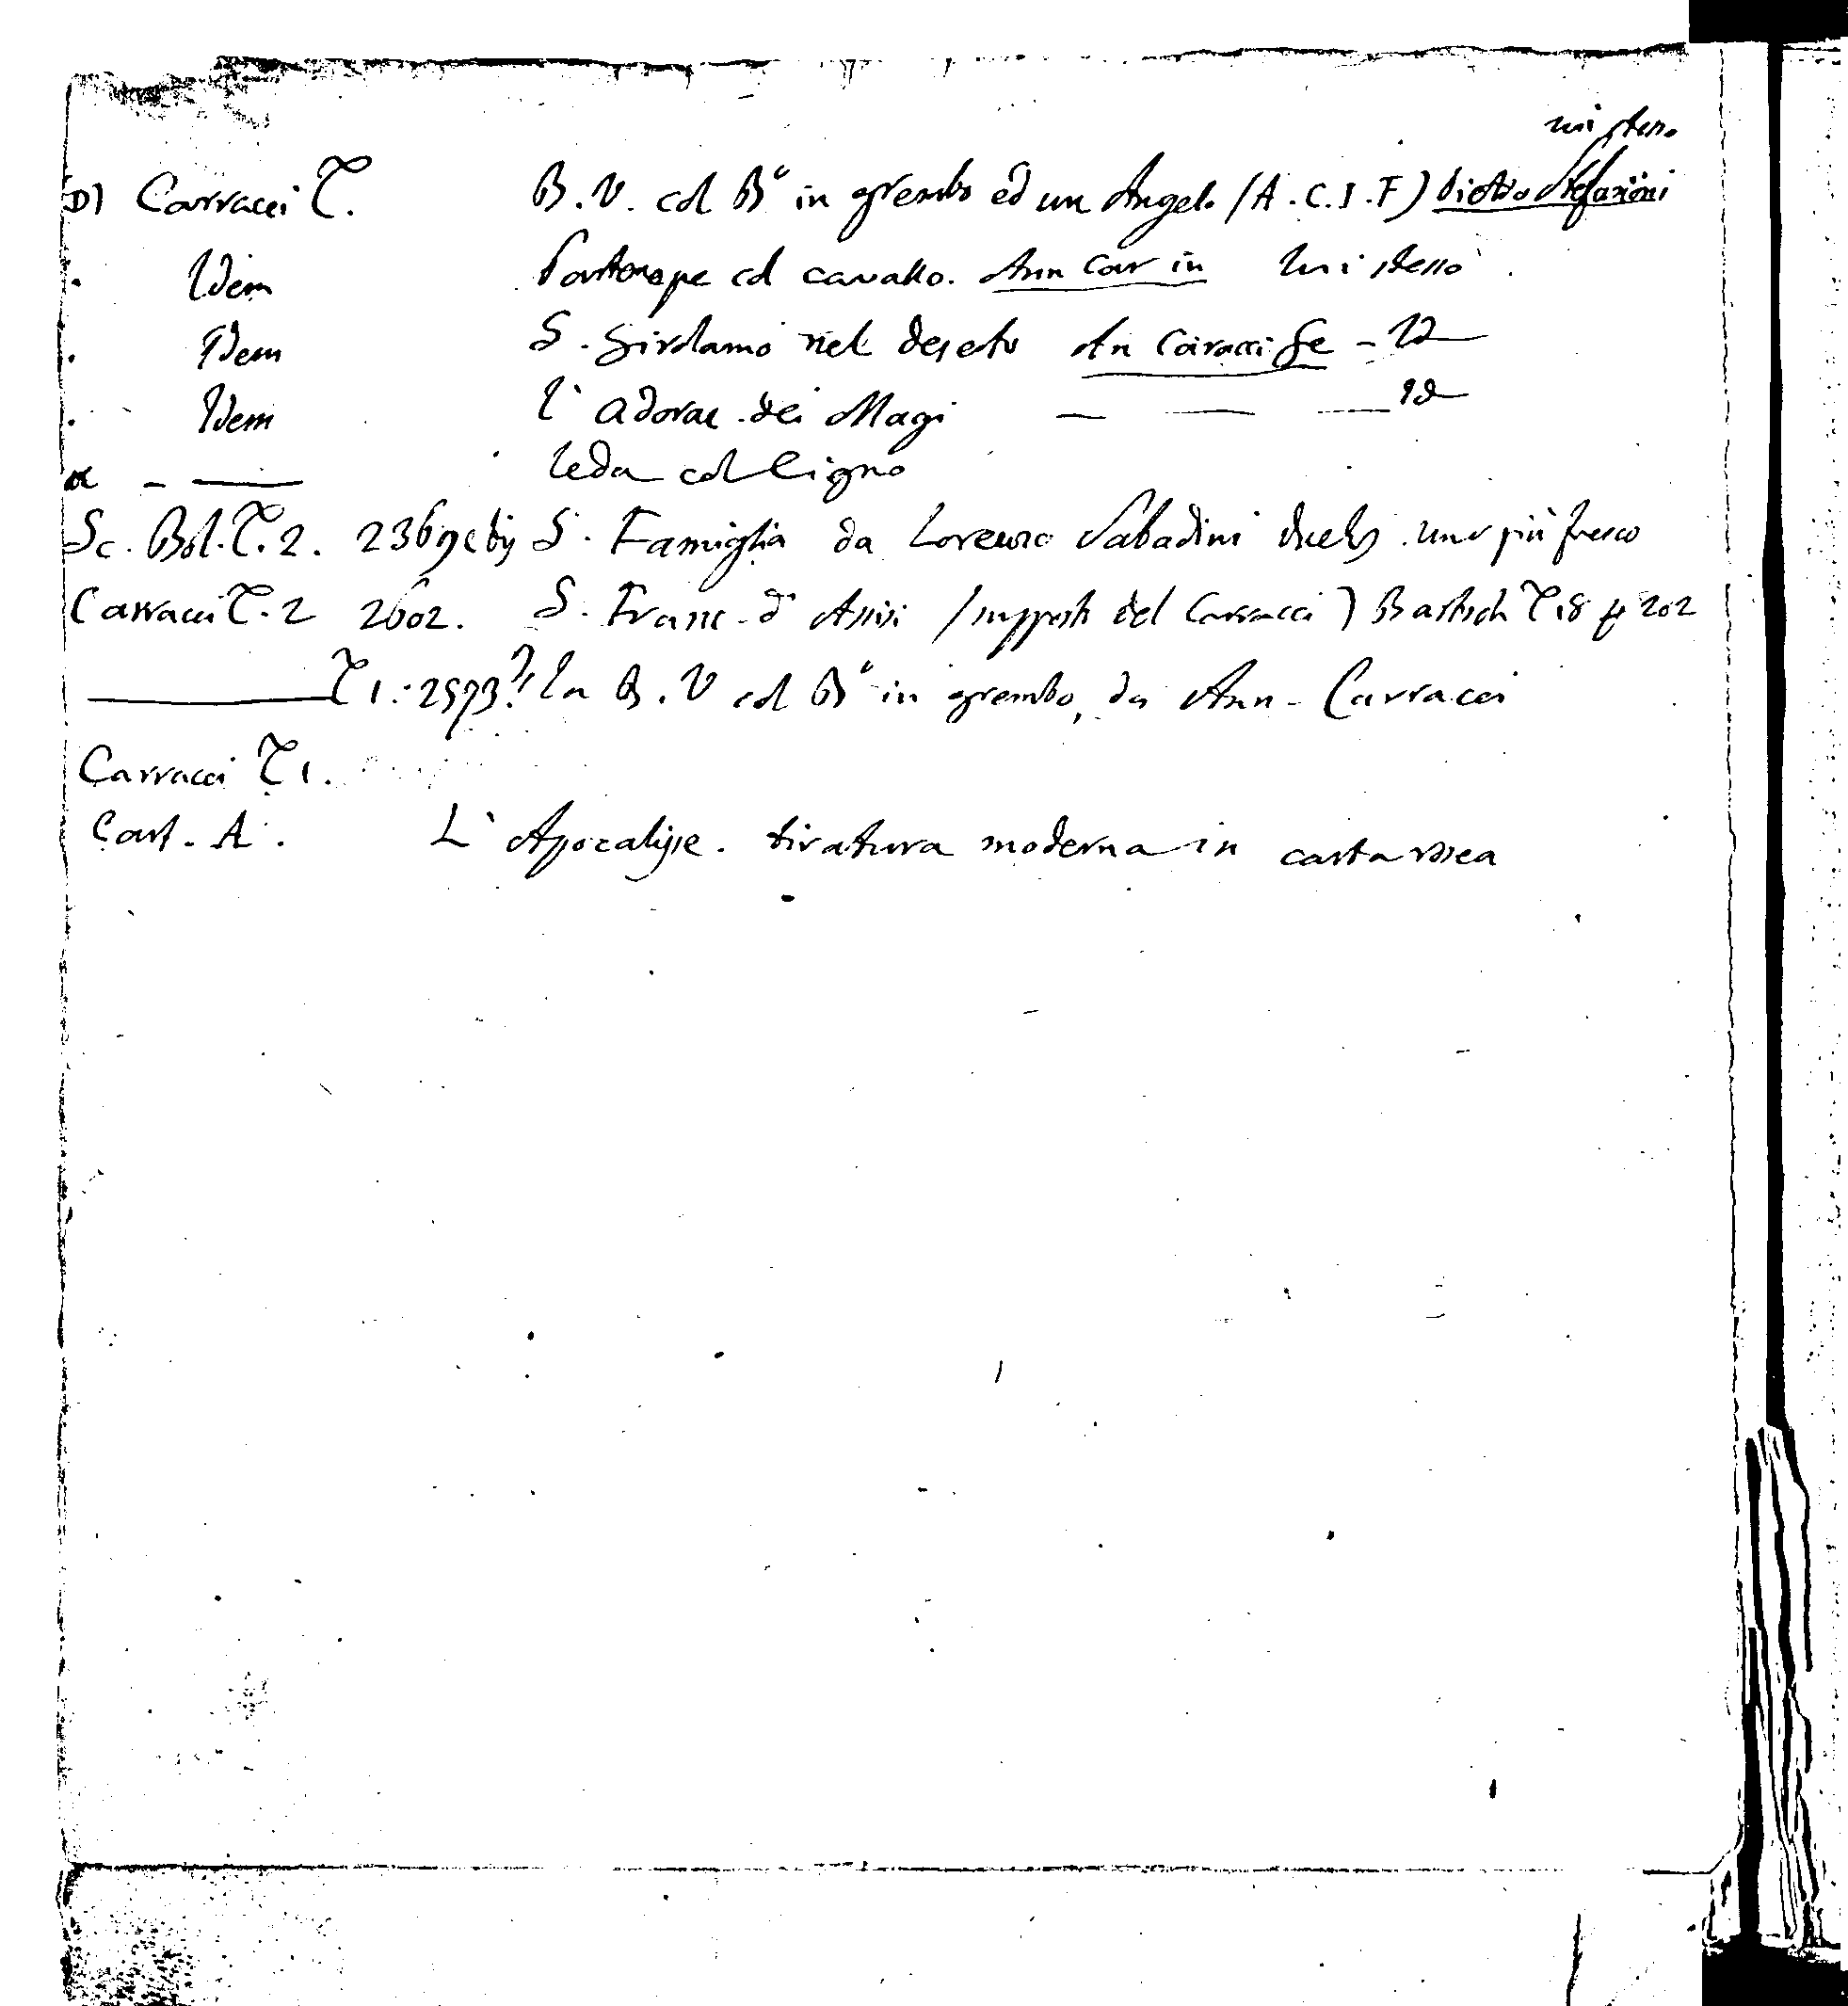 lui stesso
D) Carracci T. B. V. col B.º in grembo ed un Angelo (A. C. I. F) Pietro Stefanoni
. Idem col cavallo. Ann Car in lui stesso.
. Idem S. Girolamo nel deserto An Caracci fe - Id
. Idem l'Adoraz. dei Magi — — — Id
— — Leda col Cigno
Sc. Bol. T. 2. 2369 e bis S. Famiglia da Lorenzo Sabadini uno più fresco
Carracci T. 2 2602. S. Franc. d'Assisi (supposto del Carracci) Bartsch T 18 p 202
— T 1. 2593? La B. V col B.º in grembo, da Ann. Carracci
Carracci T 1.
Cart. A. L'Apocalisse. tiratura moderna in carta rosea